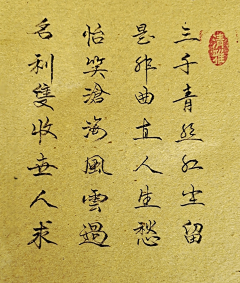 三千青丝红尘留
是非曲直人生愁
怡笑滄海風雲過
名利雙收無人求
清雅